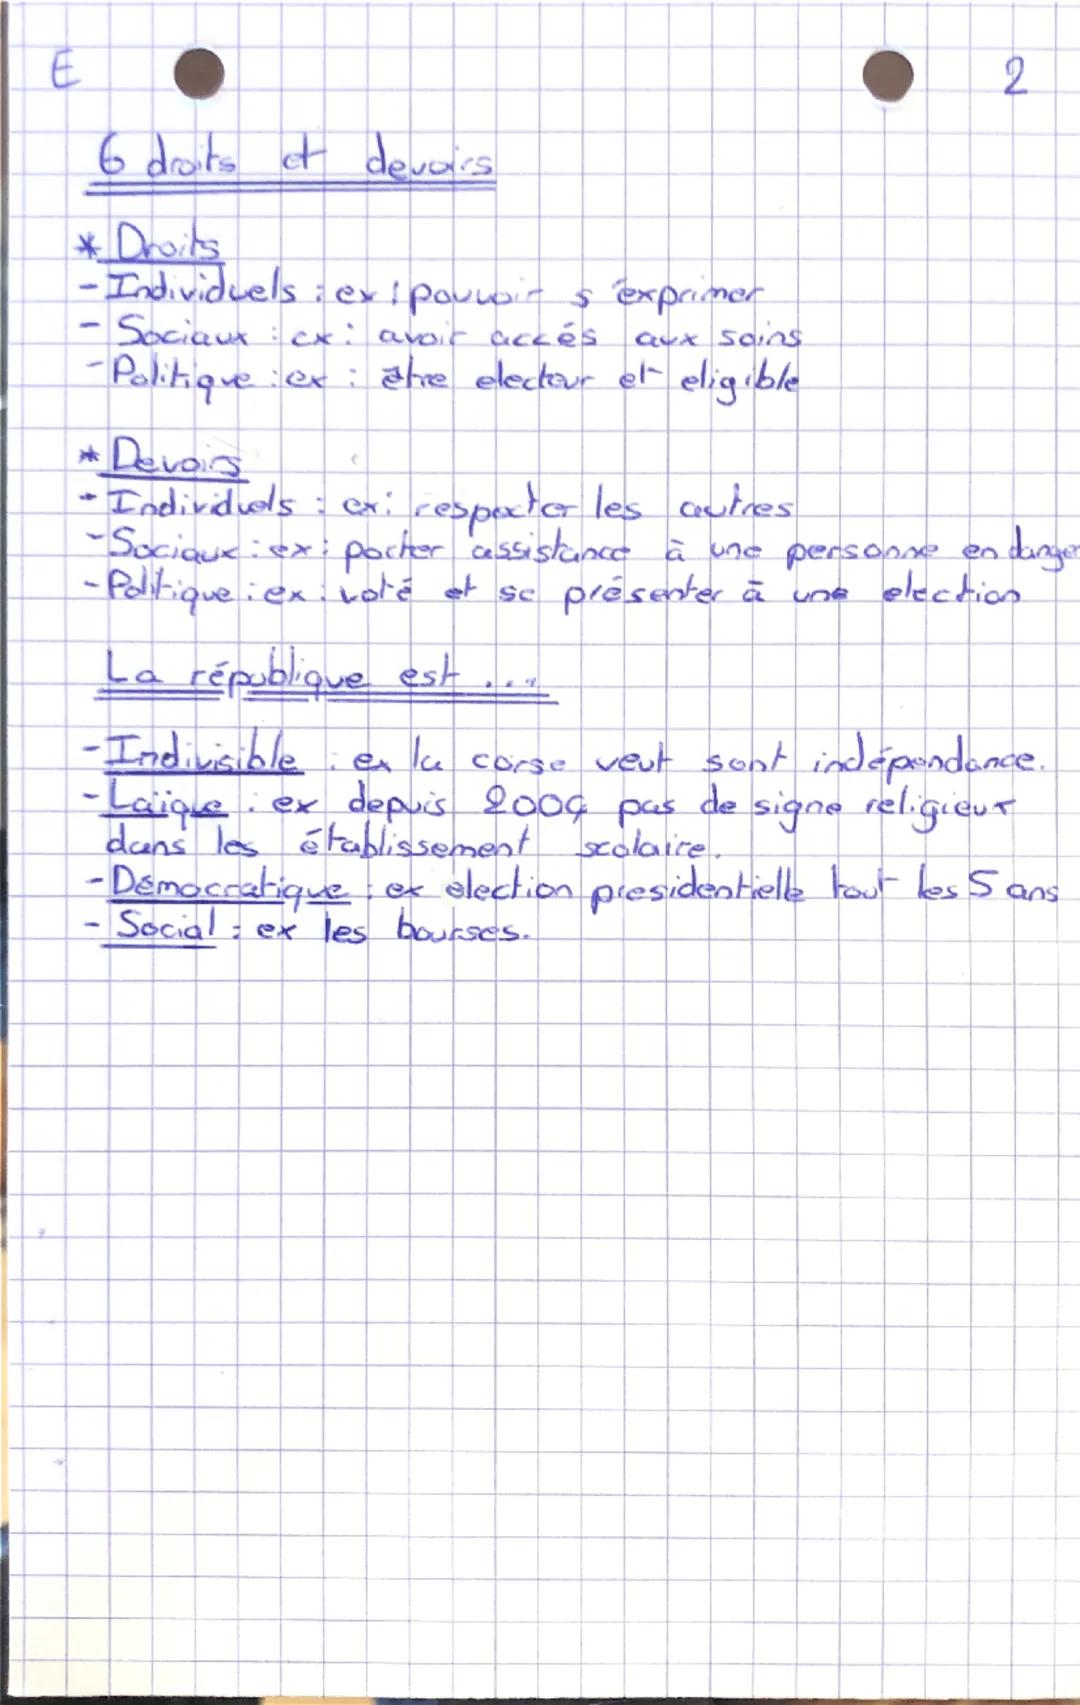 E 2
6 droits et devoirs
* Droits
- Individuels : ex : pouvoir s'exprimer
- Sociaux : ex : avoir accés aux soins
- Politique : ex : être electeur et eligible
* Devoirs
- Individuels : ex : respecter les autres
- Sociaux : ex : porter assistance à une personne en danger
- Politique : ex : voté et se présenter à une election
La république est ...
- Indivisible : ex la corse veut sont indépendance.
- Laïque : ex depuis 2004 pas de signe religieux
dans les établissement scolaire.
- Démocratique : ex election presidentielle tout les 5 ans
- Social : ex les bourses.